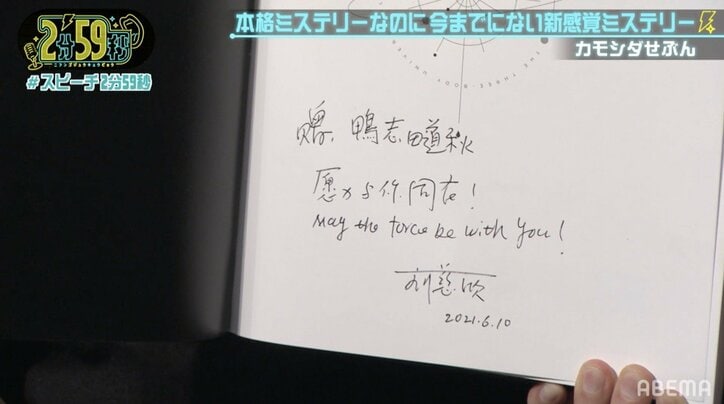 2分59秒
#スピーチ2分59秒
本格ミステリーなのに 今までにない新感覚ミステリー
カモシダせぶん
THREE BODY
赠: 鴨志田道秋
愿力与你同在!
May the force be with you!
刘慈欣
2021.6.10
ABEMA